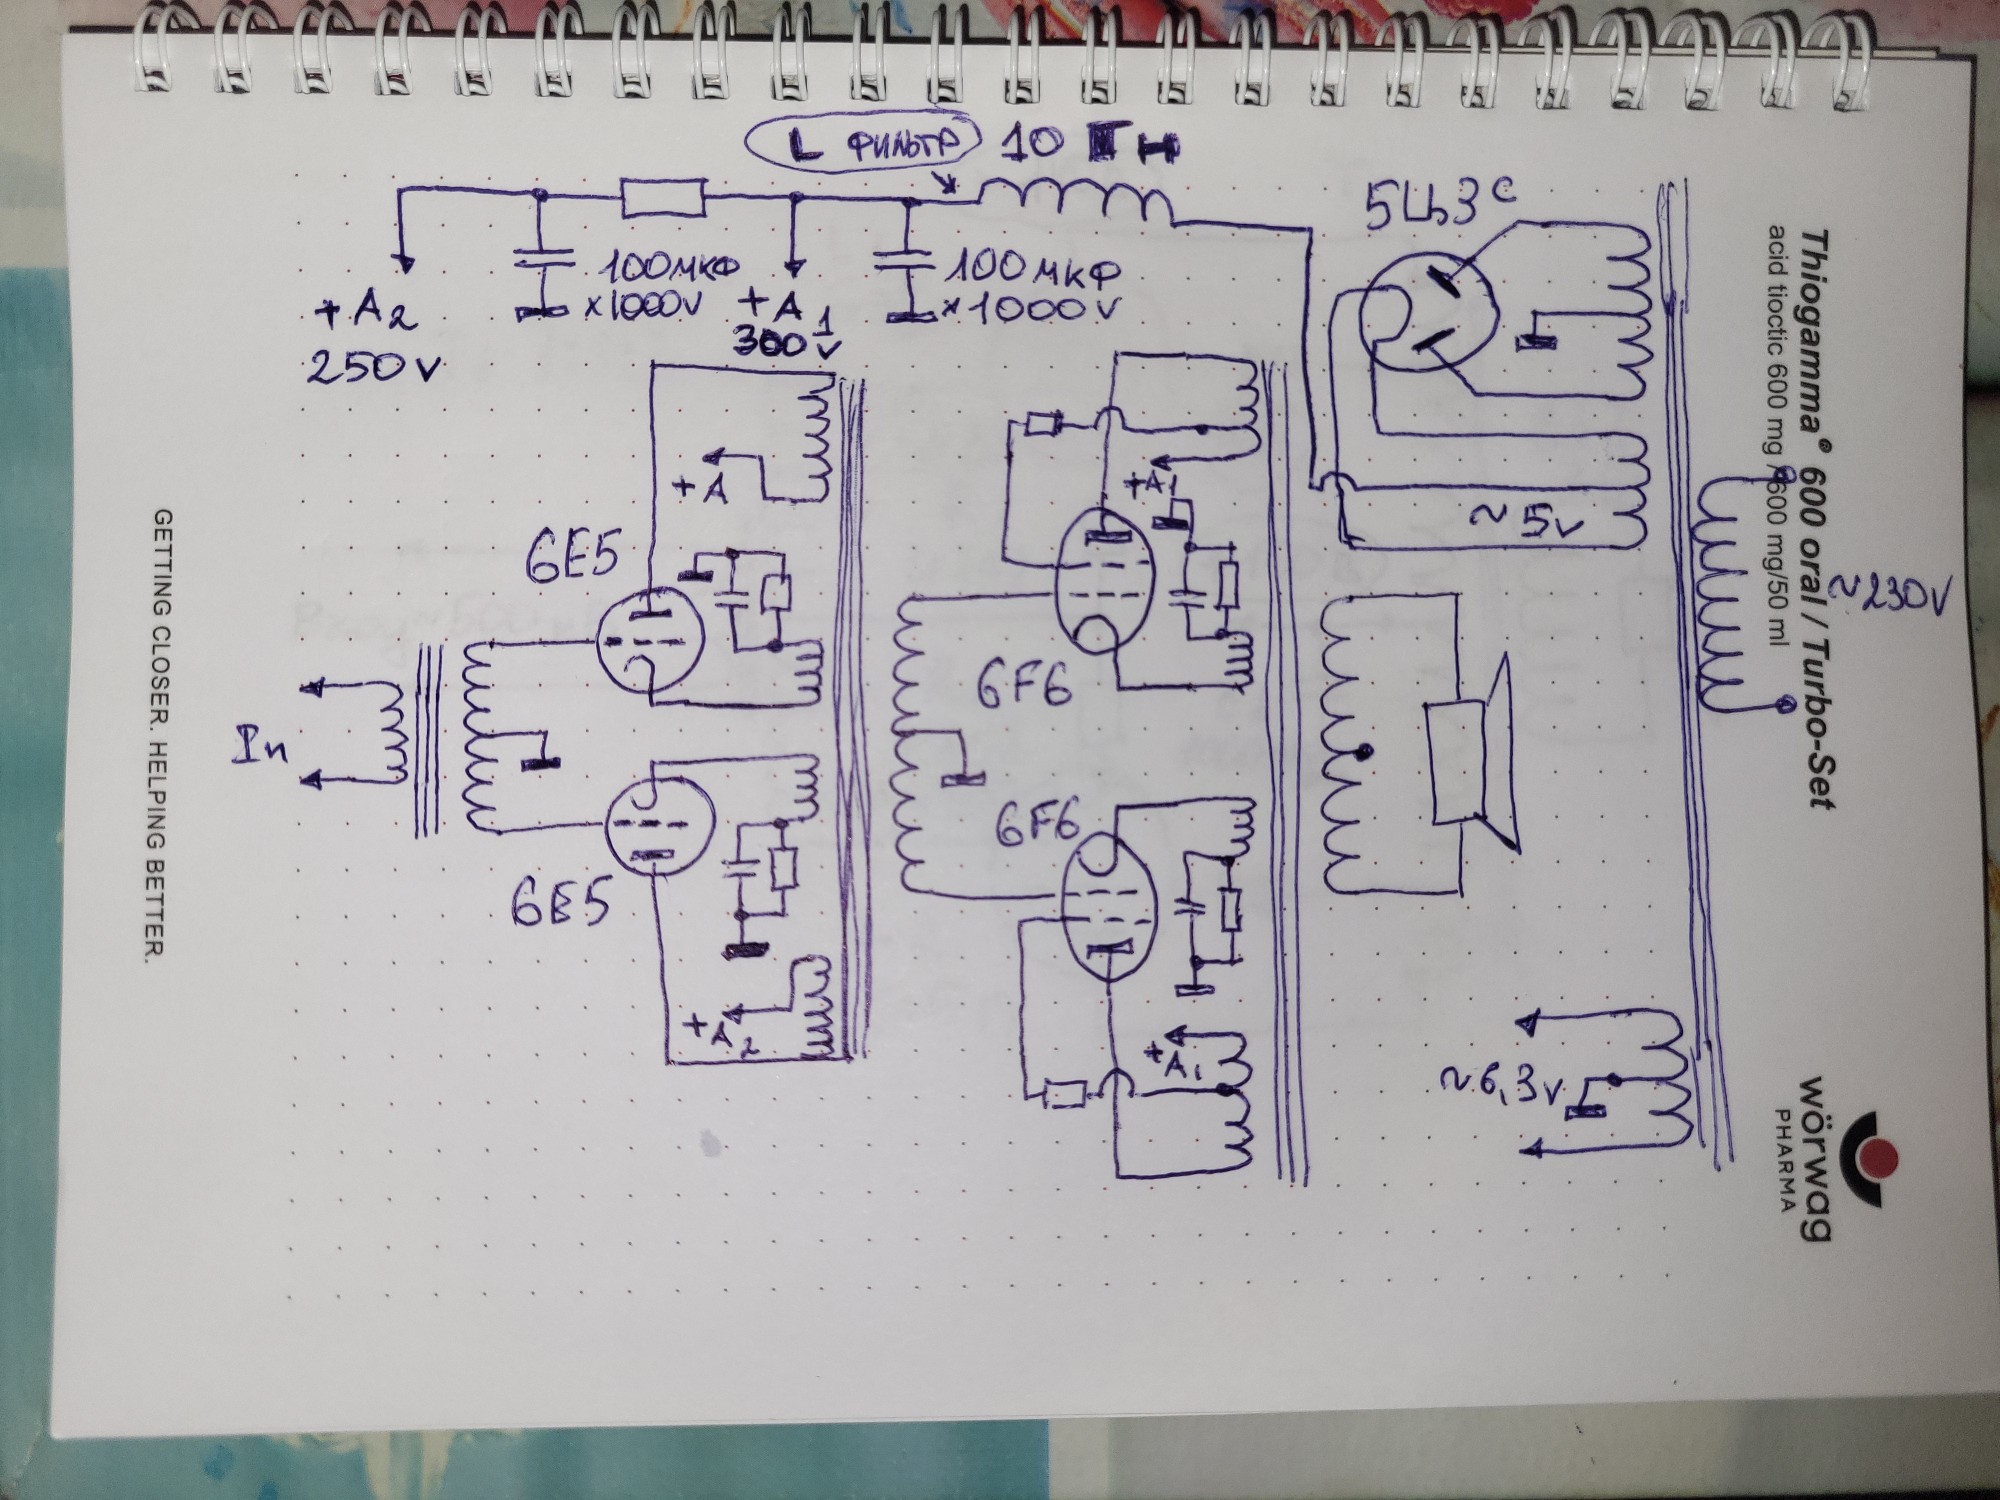 L ФИЛЬТР 10 Н
5Ц3С
100МКФ
×1000V
100МКФ
×1000V
+A2
250V
+A1
300V
+A
+A1
6E5
~5V
~230V
6F6
In
6F6
6E5
+A2
+A1
~6,3V
Thiogamma® 600 oral / Turbo-Set
acid tioctic 600 mg /600 mg/50 ml
wörwag
PHARMA
GETTING CLOSER. HELPING BETTER.